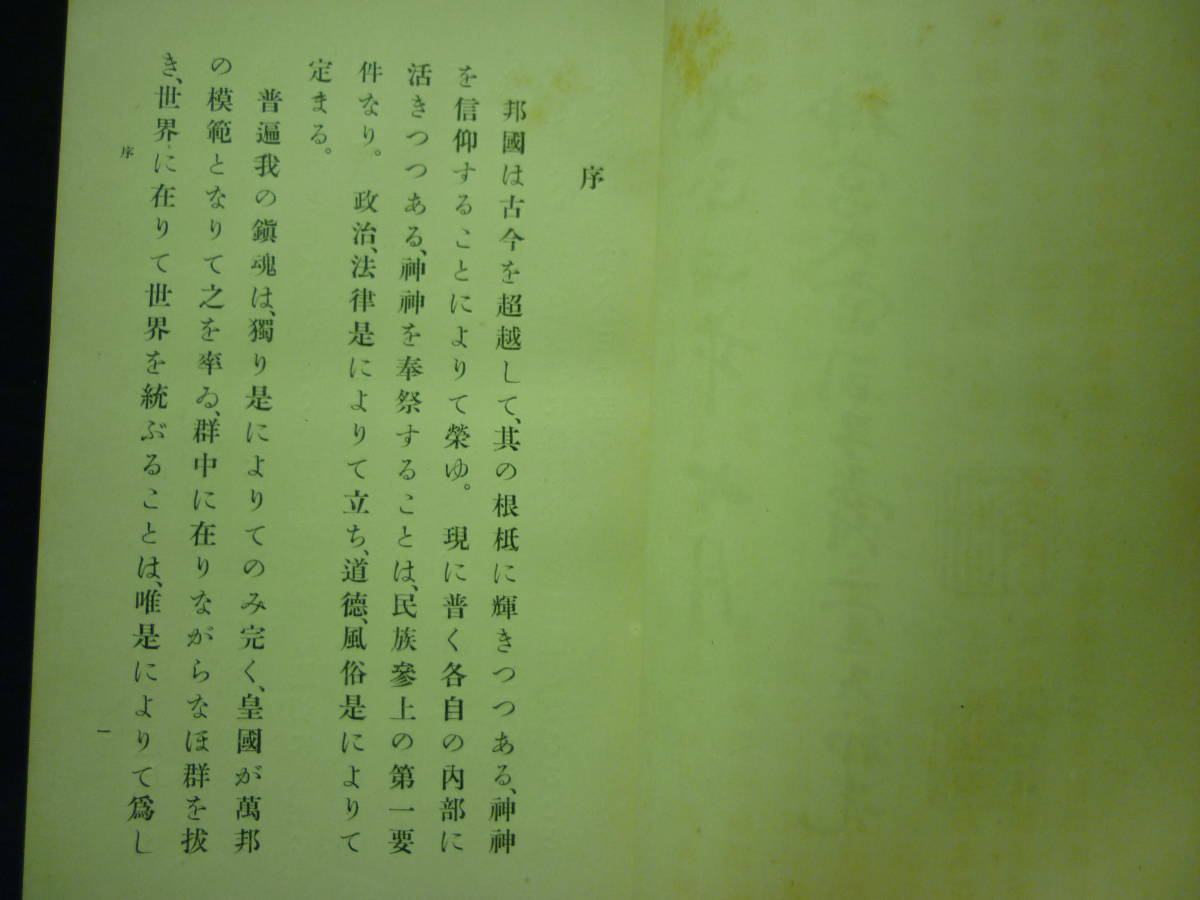 序
邦國は古今を超越して、其の根柢に輝きつつある、神神
を信仰することによりて榮ゆ。現に普く各自の內部に
活きつつある、神神を奉祭することは、民族參上の第一要
件なり。政治、法律是によりて立ち、道德、風俗是によりて
定まる。
普遍我の鎭魂は、獨り是によりてのみ完く、皇國が萬邦
の模範となりて之を率ゐ、群中に在りながらなほ群を拔
き、世界に在りて世界を統ぶることは、唯是によりて爲し
序
一